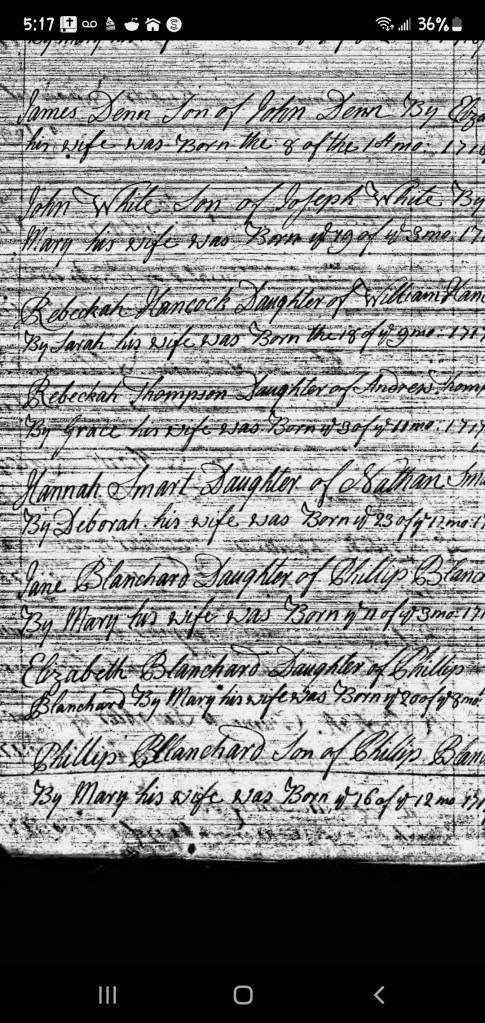 5:17
36%
James Denn Son of John Denn By Eliza
his wife was Born the 8 of the 1st mo: 1716
John White Son of Joseph White By
Mary his wife was Born ye 19 of ye 3 mo. 17
Rebeckah Hancock Daughter of William Hanc
By Sarah his wife was Born the 18 of ye 9 mo. 1717
Rebeckah Thompson Daughter of Andrew Thomp
By Grace his wife was Born ye 30 of ye 11 mo: 1717
Hannah Smart Daughter of Nathan Sma
By Deborah his wife was Born ye 23 of ye mo:
Jane Blanchard Daughter of Phillip Blanc
By Mary his wife was Born ye 11 of ye 3 mo. 17
Elizabeth Blanchard Daughter of Phillip
Blanchard By Mary his wife was Born ye 20 of ye 8 mo
Phillip Blanchard Son of Philip Blanc
By Mary his wife was Born ye 16 of ye 12 mo 171